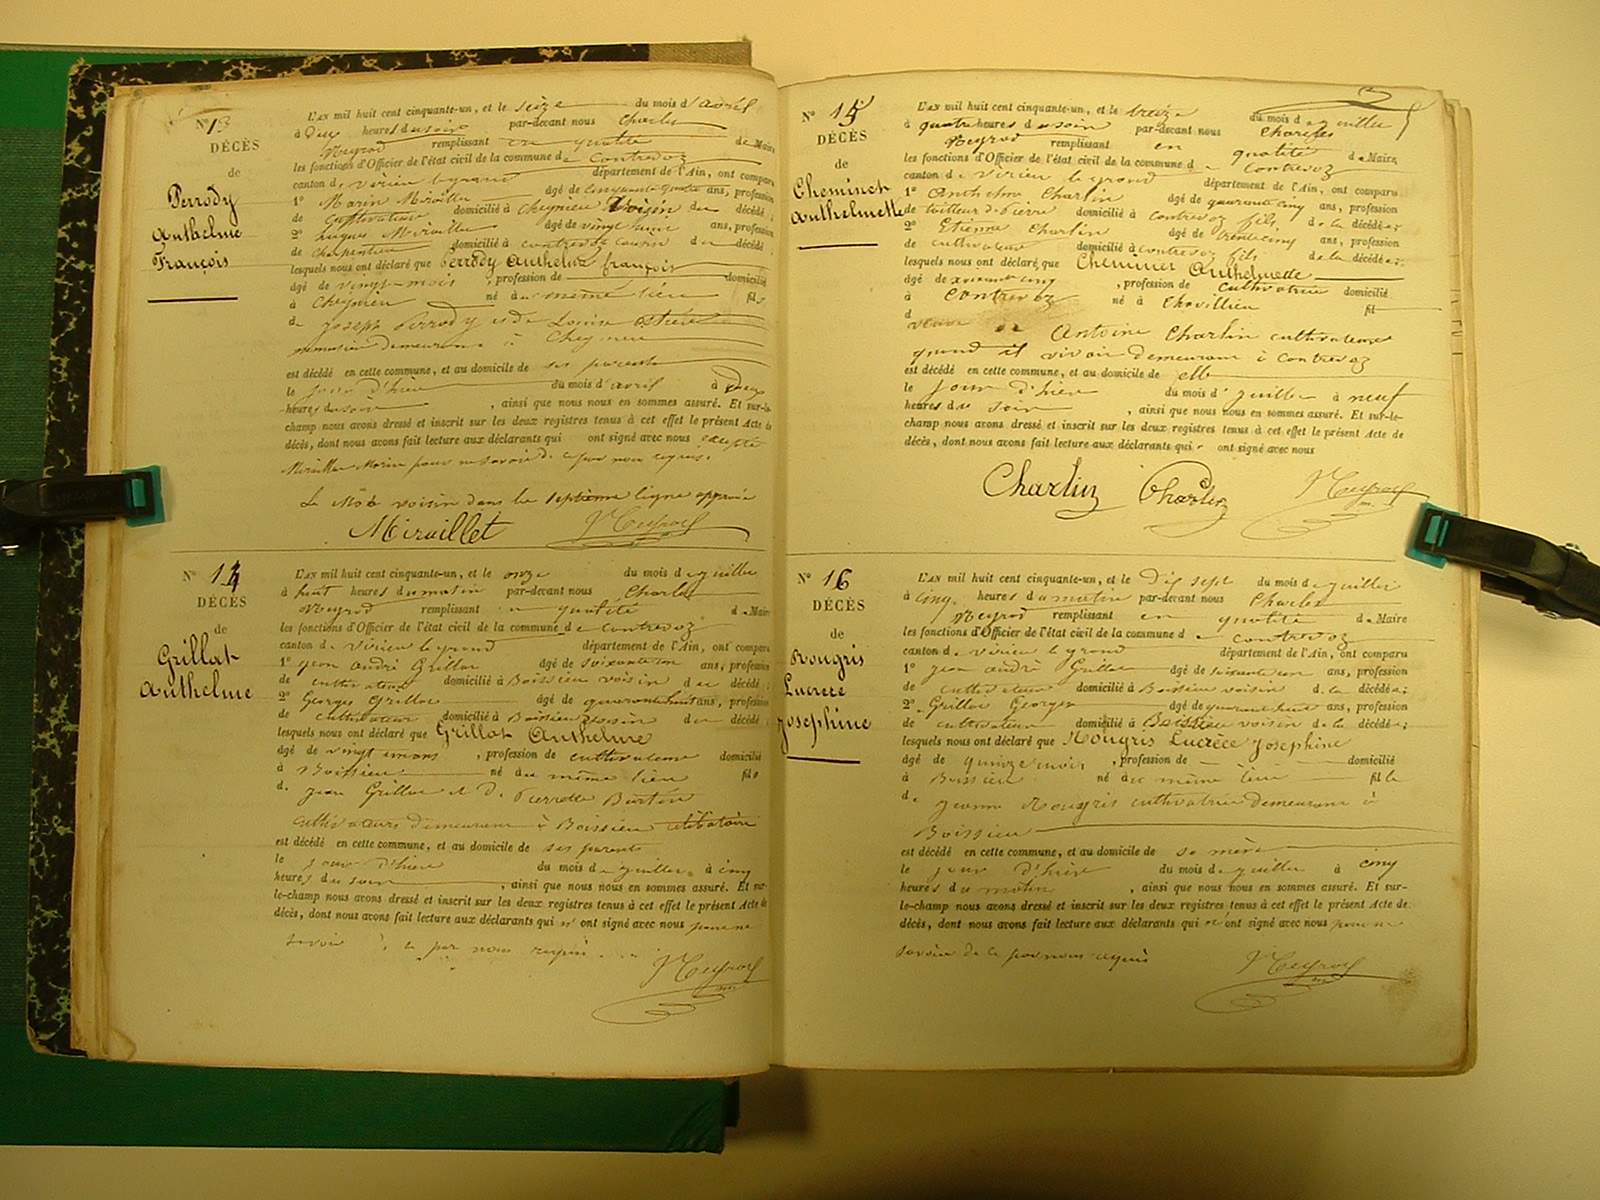 N° 13
DÉCÈS
de
Perrody
Anthelme
François
L'AN mil huit cent cinquante-un, et le seize du mois d'avril
à deux heures du soir par-devant nous Charles
Neyrod remplissant en qualité de Maire
les fonctions d'Officier de l'état civil de la commune de Contrevoz
canton de virieu le grand département de l'Ain, ont comparu
1° Morin âgé de cinquante quatre ans, profession
de cultivateur domicilié à Cheynieu Voisin du décédé;
2° âgé de vingt ans, profession
de charpentier domicilié à contrevoz cousin du décédé
lesquels nous ont déclaré que Perrody Anthelme françois
âgé de vingt-mois, profession de domicilié
à Cheynieu né au même lieu fils
de joseph Perrody et de Louise
demeurans à Cheynieu
est décédé en cette commune, et au domicile de ses parents
le jour d'hier du mois d'avril à deux
heures du soir, ainsi que nous nous en sommes assuré. Et sur-le-
champ nous avons dressé et inscrit sur les deux registres tenus à cet effet le présent Acte de
décès, dont nous avons fait lecture aux déclarants qui ont signé avec nous excepté
Morin pour ne savoir de ce par nous requis.
Le Mot voisin dans la septième ligne approuvé
Miraillet Neyrod
N° 14
DÉCÈS
de
Grillat
Anthelme
L'AN mil huit cent cinquante-un, et le onze du mois de juillet
à huit heures du matin par-devant nous Charles
Neyrod remplissant en qualité de Maire
les fonctions d'Officier de l'état civil de la commune de Contrevoz
canton de Virieu le grand département de l'Ain, ont comparu
1° jean andré Grillat âgé de soixante un ans, profession
de cultivateur domicilié à Boissieu voisin du décédé;
2° Georges Grillat âgé de quarante huit ans, profession
de cultivateur domicilié à Boissieu voisin du décédé
lesquels nous ont déclaré que Grillat Anthelme
âgé de vingt ans, profession de cultivateur domicilié
à Boissieu né au même lieu fils
de jean Grillat et de Pierrette Bertin
cultivateurs demeurans à Boissieu célibataire
est décédé en cette commune, et au domicile de ses parents
le jour d'hier du mois de juillet à cinq
heures du soir, ainsi que nous nous en sommes assuré. Et sur-
le-champ nous avons dressé et inscrit sur les deux registres tenus à cet effet le présent Acte de
décès, dont nous avons fait lecture aux déclarants qui n'ont signé avec nous pour ne
savoir de ce par nous requis
Neyrod
N° 15
DÉCÈS
de
Cheminet
Anthelmette
L'AN mil huit cent cinquante-un, et le treize du mois de juillet
à quatre heures du soir par-devant nous Charles
Neyrod remplissant en qualité de Maire
les fonctions d'Officier de l'état civil de la commune de contrevoz
canton de Virieu le grand département de l'Ain, ont comparu
1° Anthelme Charlin âgé de quarante cinq ans, profession
de tailleur de Pierre domicilié à contrevoz fils, de la décédée;
2° Etienne Charlin âgé de trente cinq ans, profession
de cultivateur domicilié à contrevoz fils de la décédée;
lesquels nous ont déclaré que Cheminet Anthelmette
âgé de cinq, profession de cultivatrice domicilié
à Contrevoz né à Chavillieu fil
d
veuve de Antoine Charlin cultivateur
quand il vivait demeurant à Contrevoz
est décédé en cette commune, et au domicile de elle
le jour d'hier du mois de juillet à neuf
heures du soir, ainsi que nous nous en sommes assuré. Et sur-le-
champ nous avons dressé et inscrit sur les deux registres tenus à cet effet le présent Acte de
décès, dont nous avons fait lecture aux déclarants qui ont signé avec nous
Charlin Charlin Neyrod
N° 16
DÉCÈS
de
Rougris
Lucrece
Josephine
L'AN mil huit cent cinquante-un, et le dix sept du mois de juillet
à cinq heures du matin par-devant nous Charles
Neyrod remplissant en qualité de Maire
les fonctions d'Officier de l'état civil de la commune de contrevoz
canton de virieu le grand département de l'Ain, ont comparu
1° jean andré Grillat âgé de soixante un ans, profession
de cultivateur domicilié à Boissieu voisin de la décédée;
2° Grillat Georges âgé de quarante huit ans, profession
de cultivateur domicilié à Boissieu voisin de la décédée;
lesquels nous ont déclaré que Rougris Lucrèce Josephine
âgé de quinze mois, profession de domicilié
à Boissieu né au même lieu fille
de jeanne Rougris cultivatrice demeurant à
Boissieu
est décédé en cette commune, et au domicile de sa mère
le jour d'hier du mois de juillet à cinq
heures du matin, ainsi que nous nous en sommes assuré. Et sur-
le-champ nous avons dressé et inscrit sur les deux registres tenus à cet effet le présent Acte de
décès, dont nous avons fait lecture aux déclarants qui n'ont signé avec nous pour ne
savoir de ce par nous requis
Neyrod